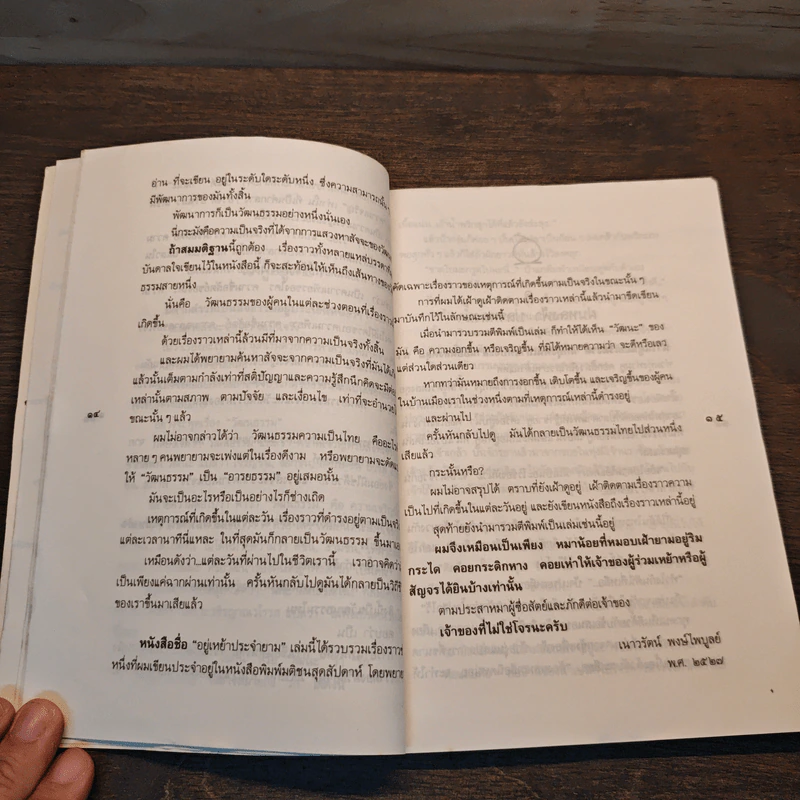 อ่าน ที่จะเขียน อยู่ในระดับใดระดับหนึ่ง ซึ่งความสามารถนั้น ๆ
มีพัฒนาการของมันทั้งสิ้น
พัฒนาการก็เป็นวัฒนธรรมอย่างหนึ่งนั่นเอง
นี่กระมังคือความเป็นจริงที่ได้จากการแสวงหาสัจจะของวัฒน
ถ้าสมมติฐานนี้ถูกต้อง เรื่องราวทั้งหลายแหล่บรรดาที่
บันดาลใจเขียนไว้ในหนังสือนี้ ก็จะสะท้อนให้เห็นถึงเส้นทางของ
ธรรมสายหนึ่ง
นั่นคือ วัฒนธรรมของผู้คนในแต่ละช่วงตอนที่เรื่องราว
เกิดขึ้น
ด้วยเรื่องราวเหล่านี้ล้วนมีที่มาจากความเป็นจริงทั้งสิ้น
และผมได้พยายามค้นหาสัจจะจากความเป็นจริงที่มันได้
แล้วนั้นเต็มตามกำลังเท่าที่สติปัญญาและความรู้สึกนึกคิดจะมีต่อ
เหล่านั้นตามสภาพ ตามปัจจัย และเงื่อนไข เท่าที่จะอำนวย
ขณะนั้น ๆ แล้ว
๑๔
ผมไม่อาจกล่าวได้ว่า วัฒนธรรมความเป็นไทย คืออะไร
หลาย ๆ คนพยายามจะเพ่งแต่ในเรื่องดีงาม หรือพยายามจะดัดแปลง
ให้ “วัฒนธรรม” เป็น “อารยธรรม” อยู่เสมอนั้น
มันจะเป็นอะไรหรือเป็นอย่างไรก็ช่างเถิด
เหตุการณ์ที่เกิดขึ้นในแต่ละวัน เรื่องราวที่ดำรงอยู่ตามเป็นจริง
แต่ละเวลานาทีนี่แหละ ในที่สุดมันก็กลายเป็นวัฒนธรรม ขึ้นมา
เหมือนดังว่า..แต่ละวันที่ผ่านไปในชีวิตเรานี้ เราอาจคิดว่า
เป็นเพียงแค่ฉากผ่านเท่านั้น ครั้นหันกลับไปดูมันได้กลายเป็นวิถีชี
ของเราขึ้นมาเสียแล้ว
หนังสือชื่อ “อยู่เหย้าประจำยาม” เล่มนี้ได้รวบรวมเรื่องราว
หนึ่งที่ผมเขียนประจำอยู่ในหนังสือพิมพ์มติชนสุดสัปดาห์ โดยพยาย
คัดเฉพาะเรื่องราวของเหตุการณ์ที่เกิดขึ้นตามเป็นจริงในขณะนั้น ๆ
การที่ผมได้เฝ้าดูเฝ้าติดตามเรื่องราวเหล่านี้แล้วนำมาขีดเขียน
มาบันทึกไว้ในลักษณะเช่นนี้
เมื่อนำมารวบรวมตีพิมพ์เป็นเล่ม ก็ทำให้ได้เห็น “วัฒนะ” ของ
มัน คือ ความงอกขึ้น หรือเจริญขึ้น ที่มิได้หมายความว่า จะดีหรือเลว
แต่ส่วนใดส่วนเดียว
หากทว่ามันหมายถึงการงอกขึ้น เติบโตขึ้น และเจริญขึ้นของผู้คน
ในบ้านเมืองเราในช่วงหนึ่งตามที่เหตุการณ์เหล่านี้ดำรงอยู่
และผ่านไป
๑๕
ครั้นหันกลับไปดู มันได้กลายเป็นวัฒนธรรมไทยไปส่วนหนึ่ง
เสียแล้ว
กระนั้นหรือ?
ผมไม่อาจสรุปได้ ตราบที่ยังเฝ้าดูอยู่ เฝ้าติดตามเรื่องราวความ
เป็นไปที่เกิดขึ้นในแต่ละวันอยู่ และยังเขียนหนังสือถึงเรื่องราวเหล่านี้อยู่
สุดท้ายยังนำมารวมตีพิมพ์เป็นเล่มเช่นนี้อยู่
ผมจึงเหมือนเป็นเพียง หมาน้อยที่หมอบเฝ้ายามอยู่ริม
กระได คอยกระดิกหาง คอยเห่าให้เจ้าของผู้ร่วมเหย้าหรือผู้
สัญจรได้ยินบ้างเท่านั้น
ตามประสาหมาผู้ซื่อสัตย์และภักดีต่อเจ้าของ
เจ้าของที่ไม่ใช่โจรนะครับ
เนาวรัตน์ พงษ์ไพบูลย์
พ.ศ. ๒๕๒๗